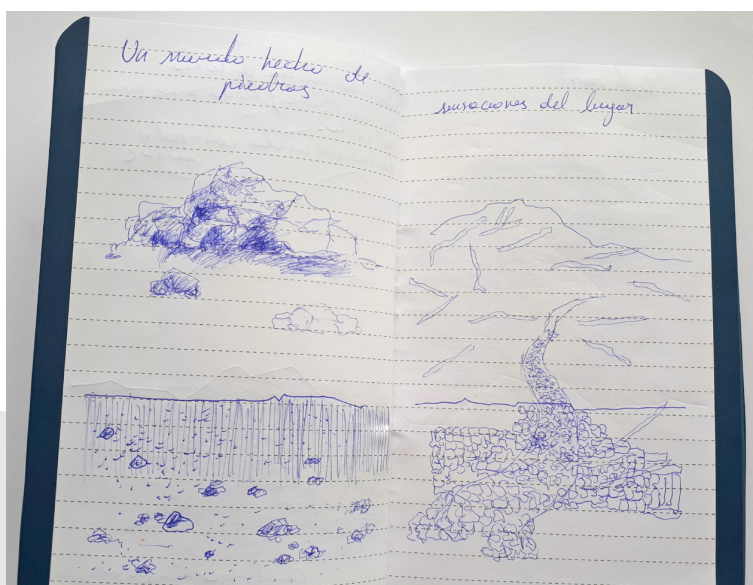 Un mundo hecho de
piedras
sensaciones del lugar